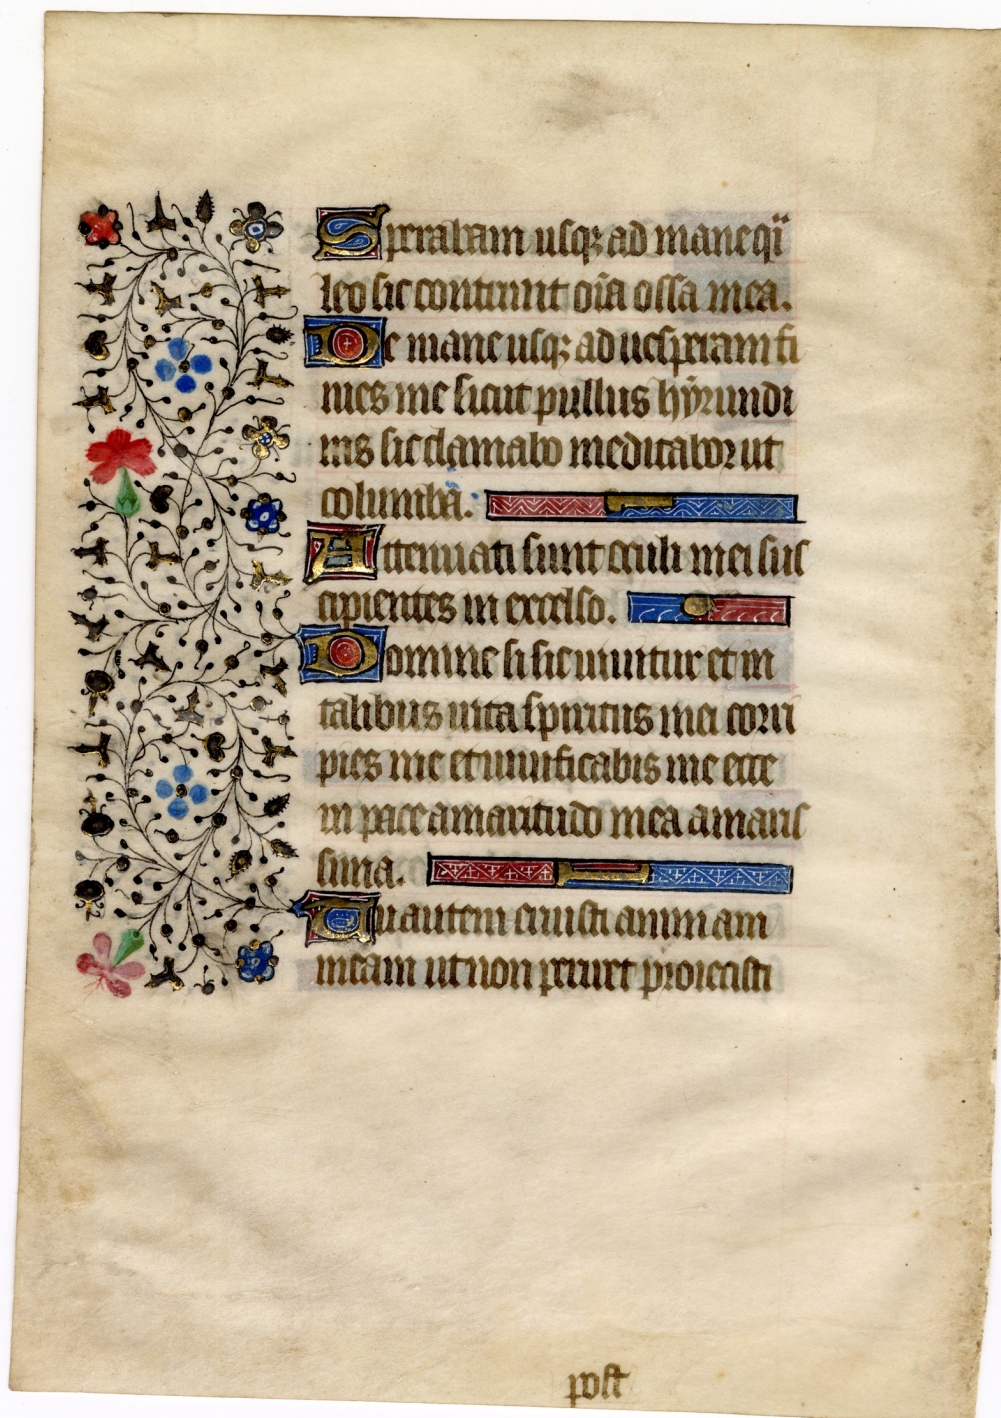 Sperabam usq; ad mane q̄i
leo sic contriuit oīa ossa mea.
De mane usq; ad uesperam fi
nies me sicut pullus hyrundi
nis sic clamabo meditabor ut
columba.
Attenuati sunt oculi mei sus
cipientes in excelso.
Domine si sic uiuitur et in
talibus uita spiritus mei corri
pies me et uiuificabis me ecce
in pace amaritudo mea amaris
sima.
Tu autem eruisti animam
meam ut non periret proiecisti
post